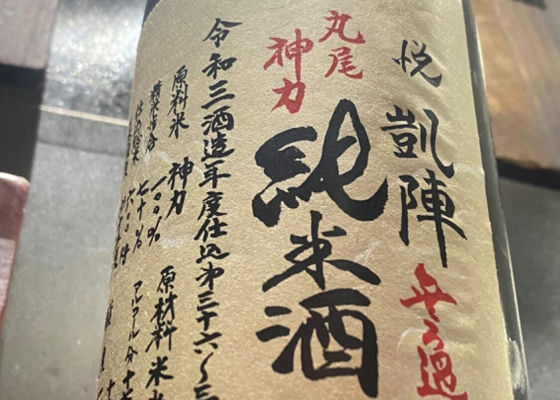 悦 凱陣 無ろ過
丸尾
神力
純米酒
令和三酒造年度仕込第三十六〜三
原料米 神力 一〇〇% 原材料 米
精米歩合 七十% アルコール分 十